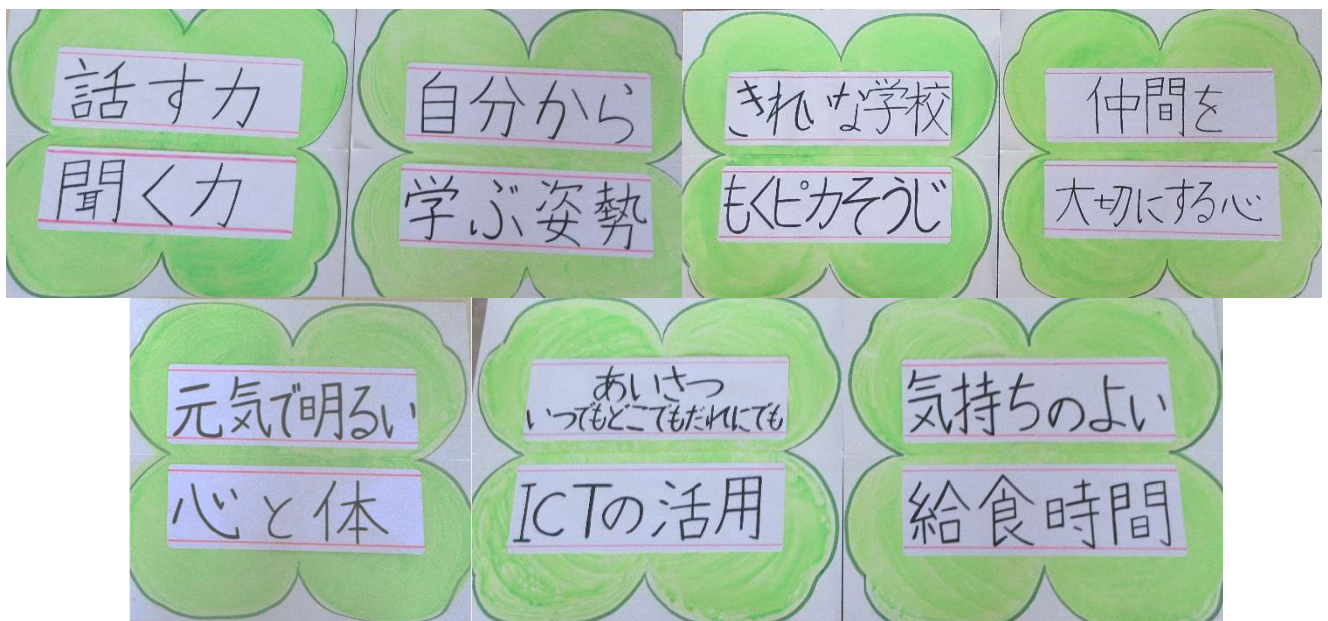 話す力
聞く力
自分から
学ぶ姿勢
きれいな学校
もくピカそうじ
仲間を
大切にする心
元気で明るい
心と体
あいさつ
いつでもどこでもだれにでも
ICTの活用
気持ちのよい
給食時間